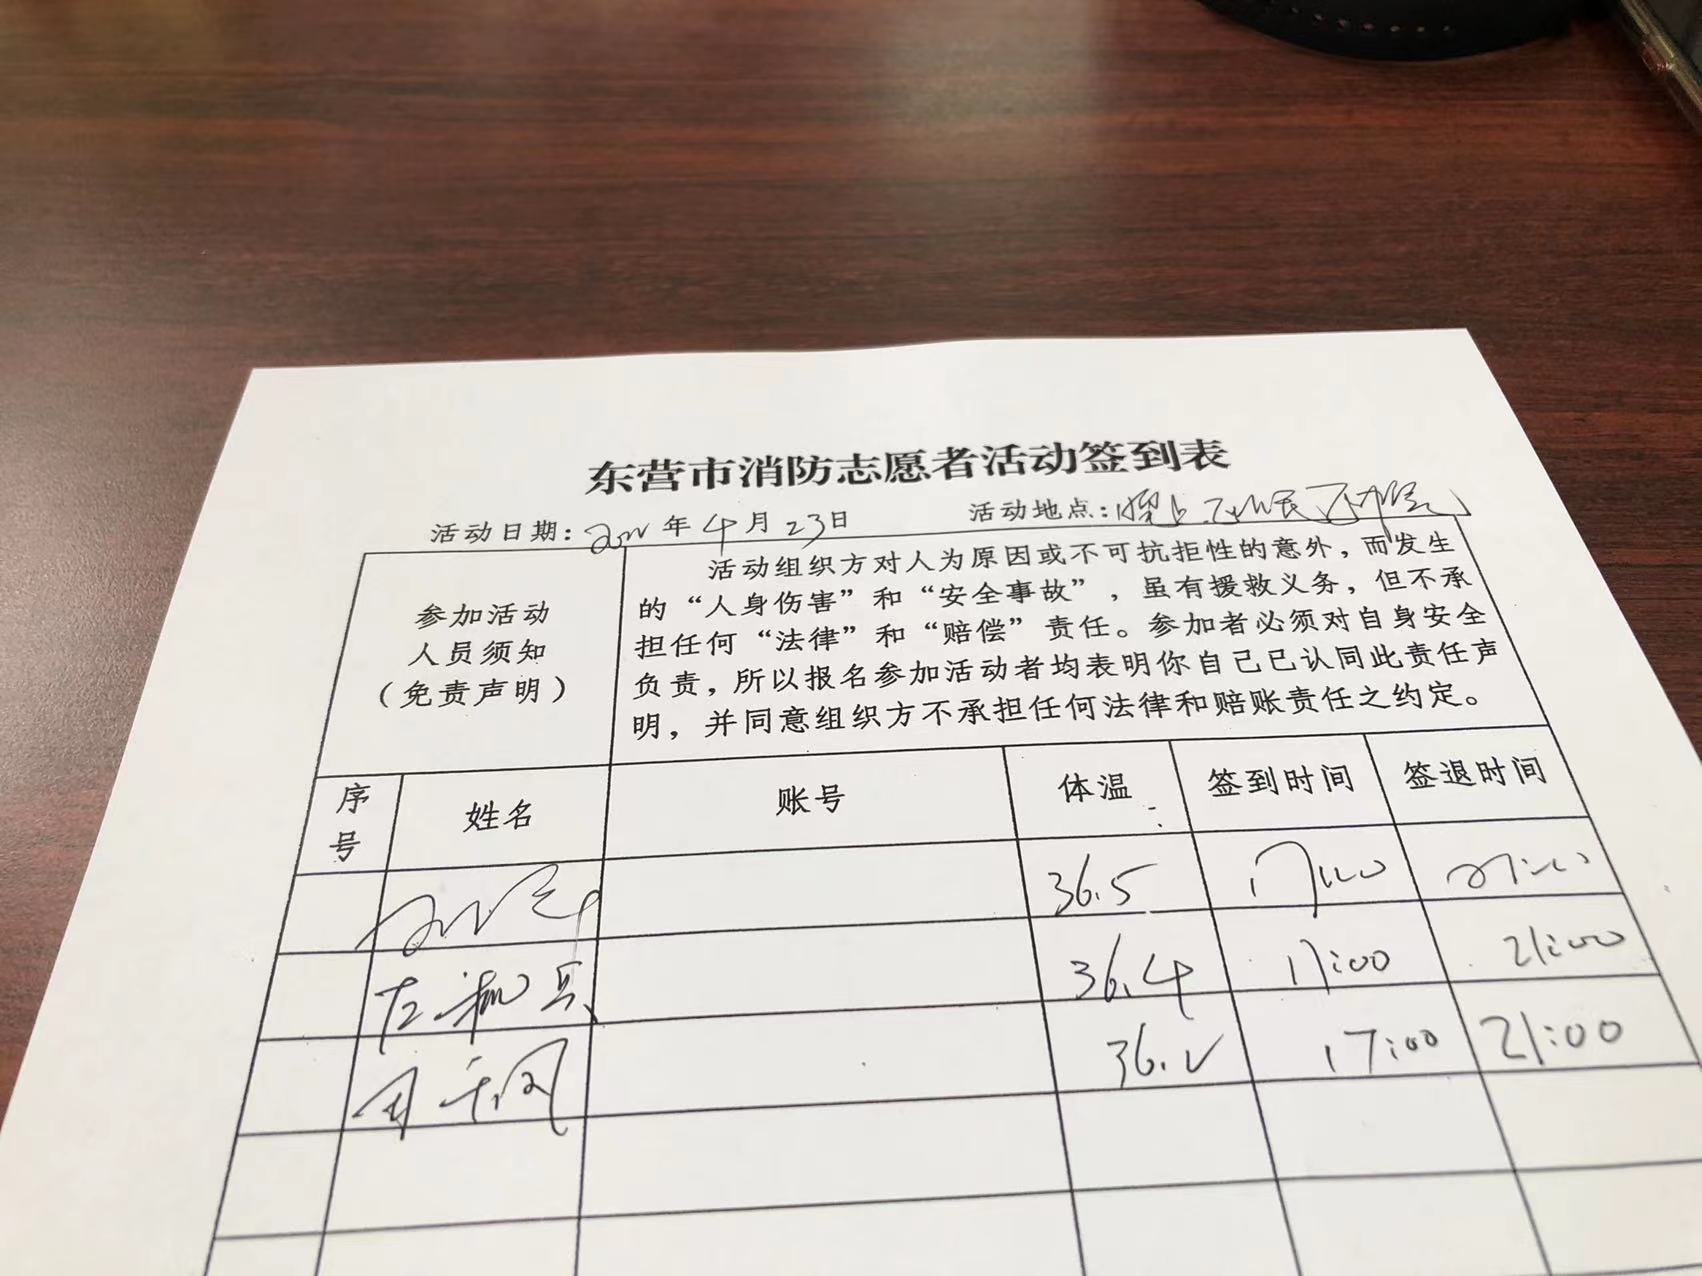 东营市消防志愿者活动签到表
活动日期：2022年4月23日 活动地点：
参加活动
人员须知
（免责声明）
活动组织方对人为原因或不可抗拒性的意外，而发生
的“人身伤害”和“安全事故”，虽有援救义务，但不承
担任何“法律”和“赔偿”责任。参加者必须对自身安全
负责，所以报名参加活动者均表明你自己已认同此责任声
明，并同意组织方不承担任何法律和赔账责任之约定。
序号 姓名 账号 体温 签到时间 签退时间
36.5 17:00 21:00
36.4 17:00 21:00
36.2 17:00 21:00